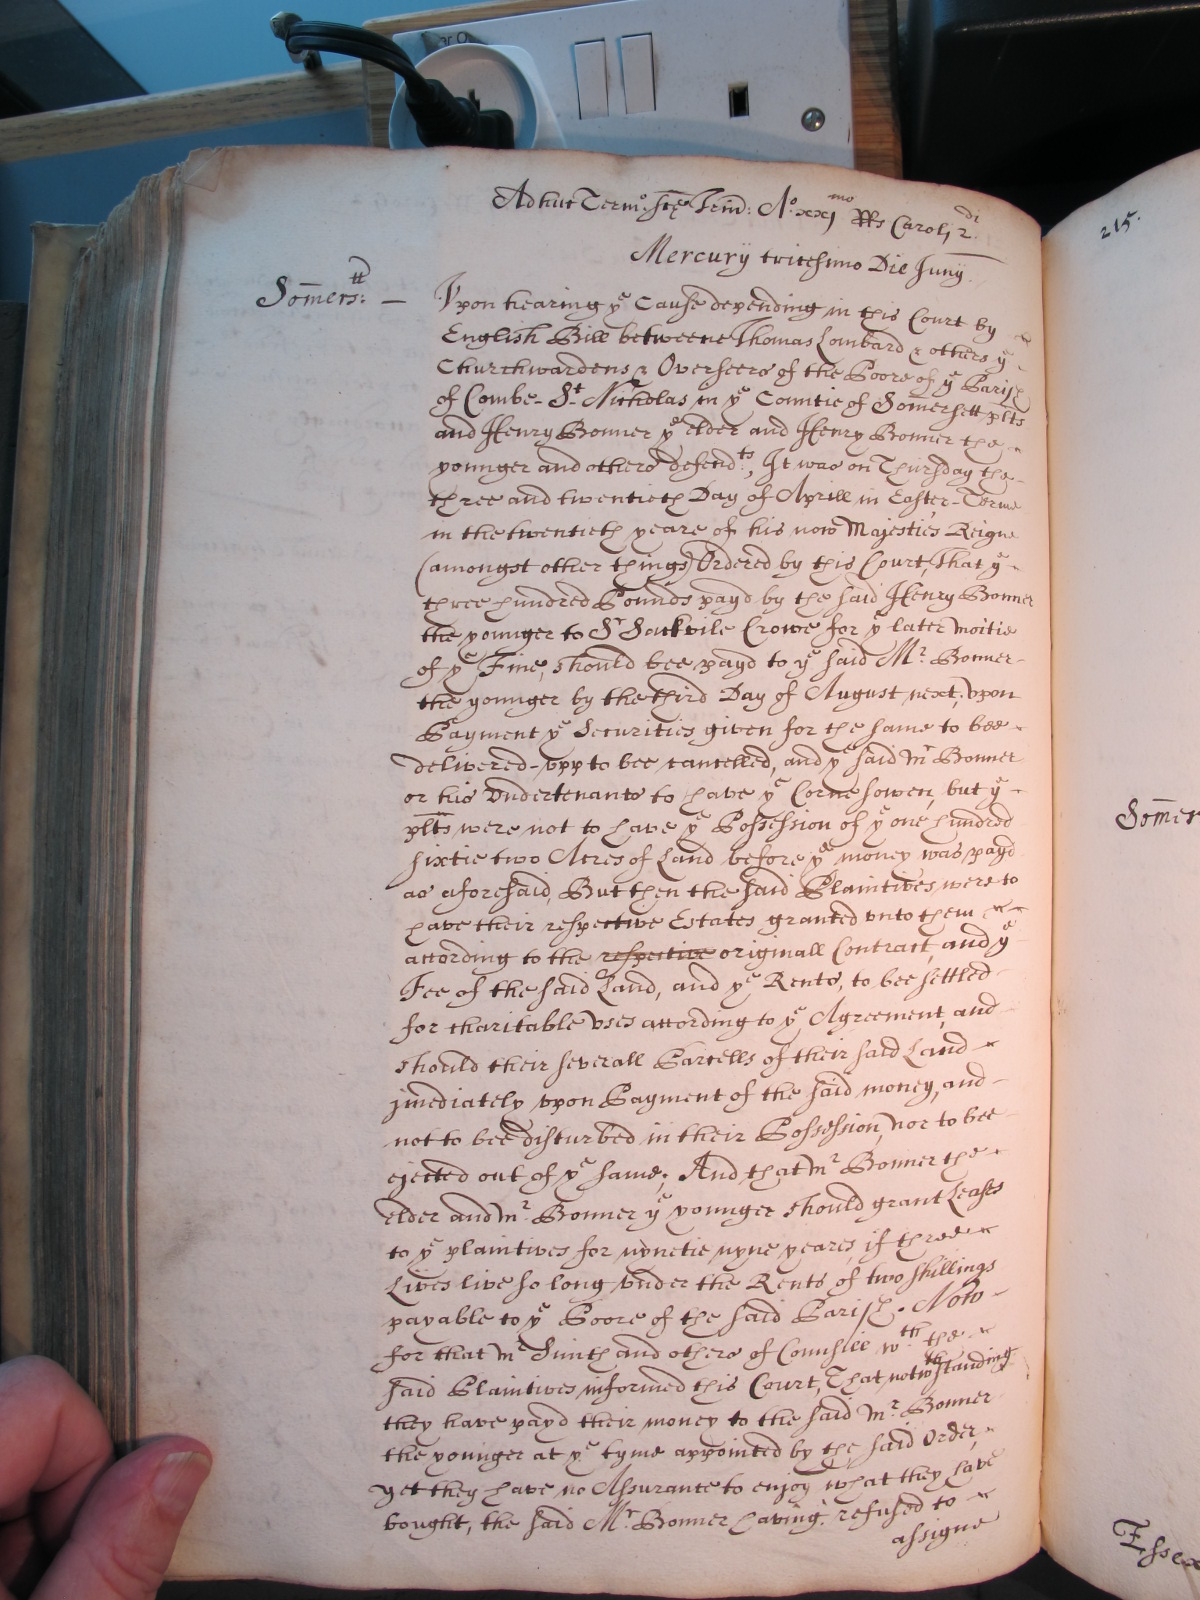 Adhuc Term.o scte Trin: A.o xxj mo RRs Caroli 2 di
Mercurij tricesimo Die Junij
Somers:tt —
Vpon hearing ye Cause depending in this Court by
English Bill betweene Thomas Lombard & others ye
Churchwardens & Overseers of the Poore of ye Parish
of Combe-St. Nicholas in ye Countie of Somersett plts
and Henry Bonner ye elder and Henry Bonner the
younger and others defend.ts, It was on Thursday the
three and twentieth Day of Aprill in Easter-Terme
in the twentieth yeare of his now Majesties Reigne
(amongst other things) Ordered by this Court, That ye
three hundred Pounds payd by the said Henry Bonner
the younger to Sr Sackvile Crowe for ye later moitie
of ye Fine, should bee payd to ye said Mr. Bonner
the younger by the third Day of August next; vpon
Payment ye Securities given for the same to bee
delivered-vpp to bee cancelled, and ye said Mr Bonner
or his Vndertenants to have ye Corne sowen, but ye
plts were not to have ye Possession of ye one hundred
sixtie two Acres of Land before ye money was payd
as aforesaid, But then the said Plaintives were to
have their respective Estates granted vnto them
according to the respective originall Contract, and ye
Fee of the said Land, and ye Rents, to bee settled
for charitable vses according to ye Agreement, and
should their severall Parcells of their said Land
jmediately vpon Payment of the said money, and
not to bee disturbed in their Possession, nor to bee
ejected out of ye same; And that Mr Bonner the
elder and Mr. Bonner ye younger should grant Leases
to ye plaintives for nynetie nyne yeares, if three
Lives live so long vnder the Rents of two shillings
payable to ye Poore of the said Parish. Now
for that Mr Smith and others of Counsell wth the
said Plaintives informed this Court, That notwthstanding
they have payd their money to the said Mr. Bonner
the younger at ye tyme appointed by the said Order,
yet they have no Assurance to enjoy what they have
bought, the said Mr. Bonner having refused to
assigne
215.
Somer
Essex